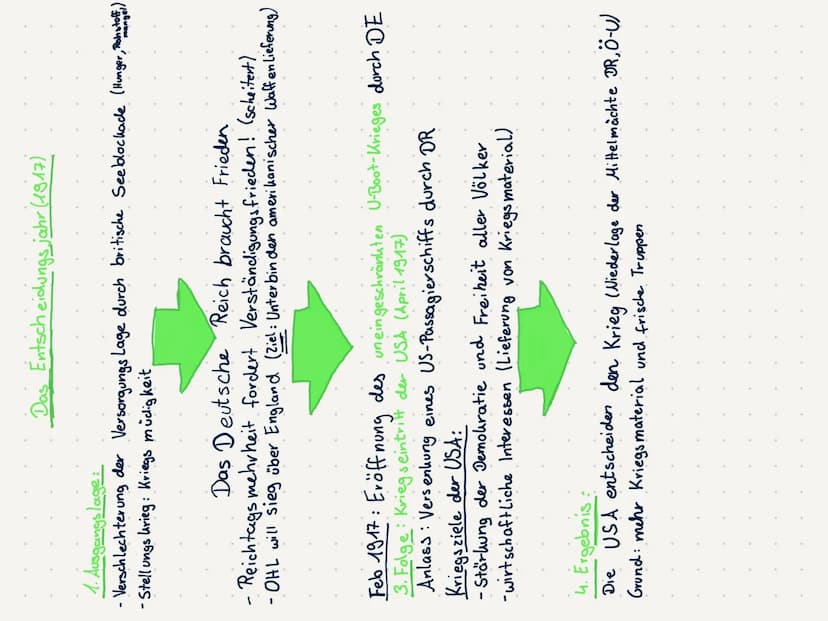 Das Entscheidungsjahr (1917)
1. Ausgangslage:
- Verschlechterung der Versorgungslage durch britische Seeblockade (Hunger, Rohstoffmangel)
- Stellungskrieg: Kriegsmüdigkeit
Das Deutsche Reich braucht Frieden
- Reichtagsmehrheit fordert Verständigungsfrieden! (scheitert)
- OHL will Sieg über England (Ziel: Unterbinden amerikanischer Waffenlieferung)
Feb 1917: Eröffnung des uneingeschränkten U-Boot-Krieges durch DE
3. Folge: Kriegseintritt der USA (April 1917)
Anlass: Versenkung eines US-Passagierschiffs durch DR
Kriegsziele der USA:
- Stärkung der Demokratie und Freiheit aller Völker
- wirtschaftliche Interessen (Lieferung von Kriegsmaterial)
4. Ergebnis:
Die USA entscheiden den Krieg (Niederlage der Mittelmächte DR, Ö-U)
Grund: mehr Kriegsmaterial und frische Truppen